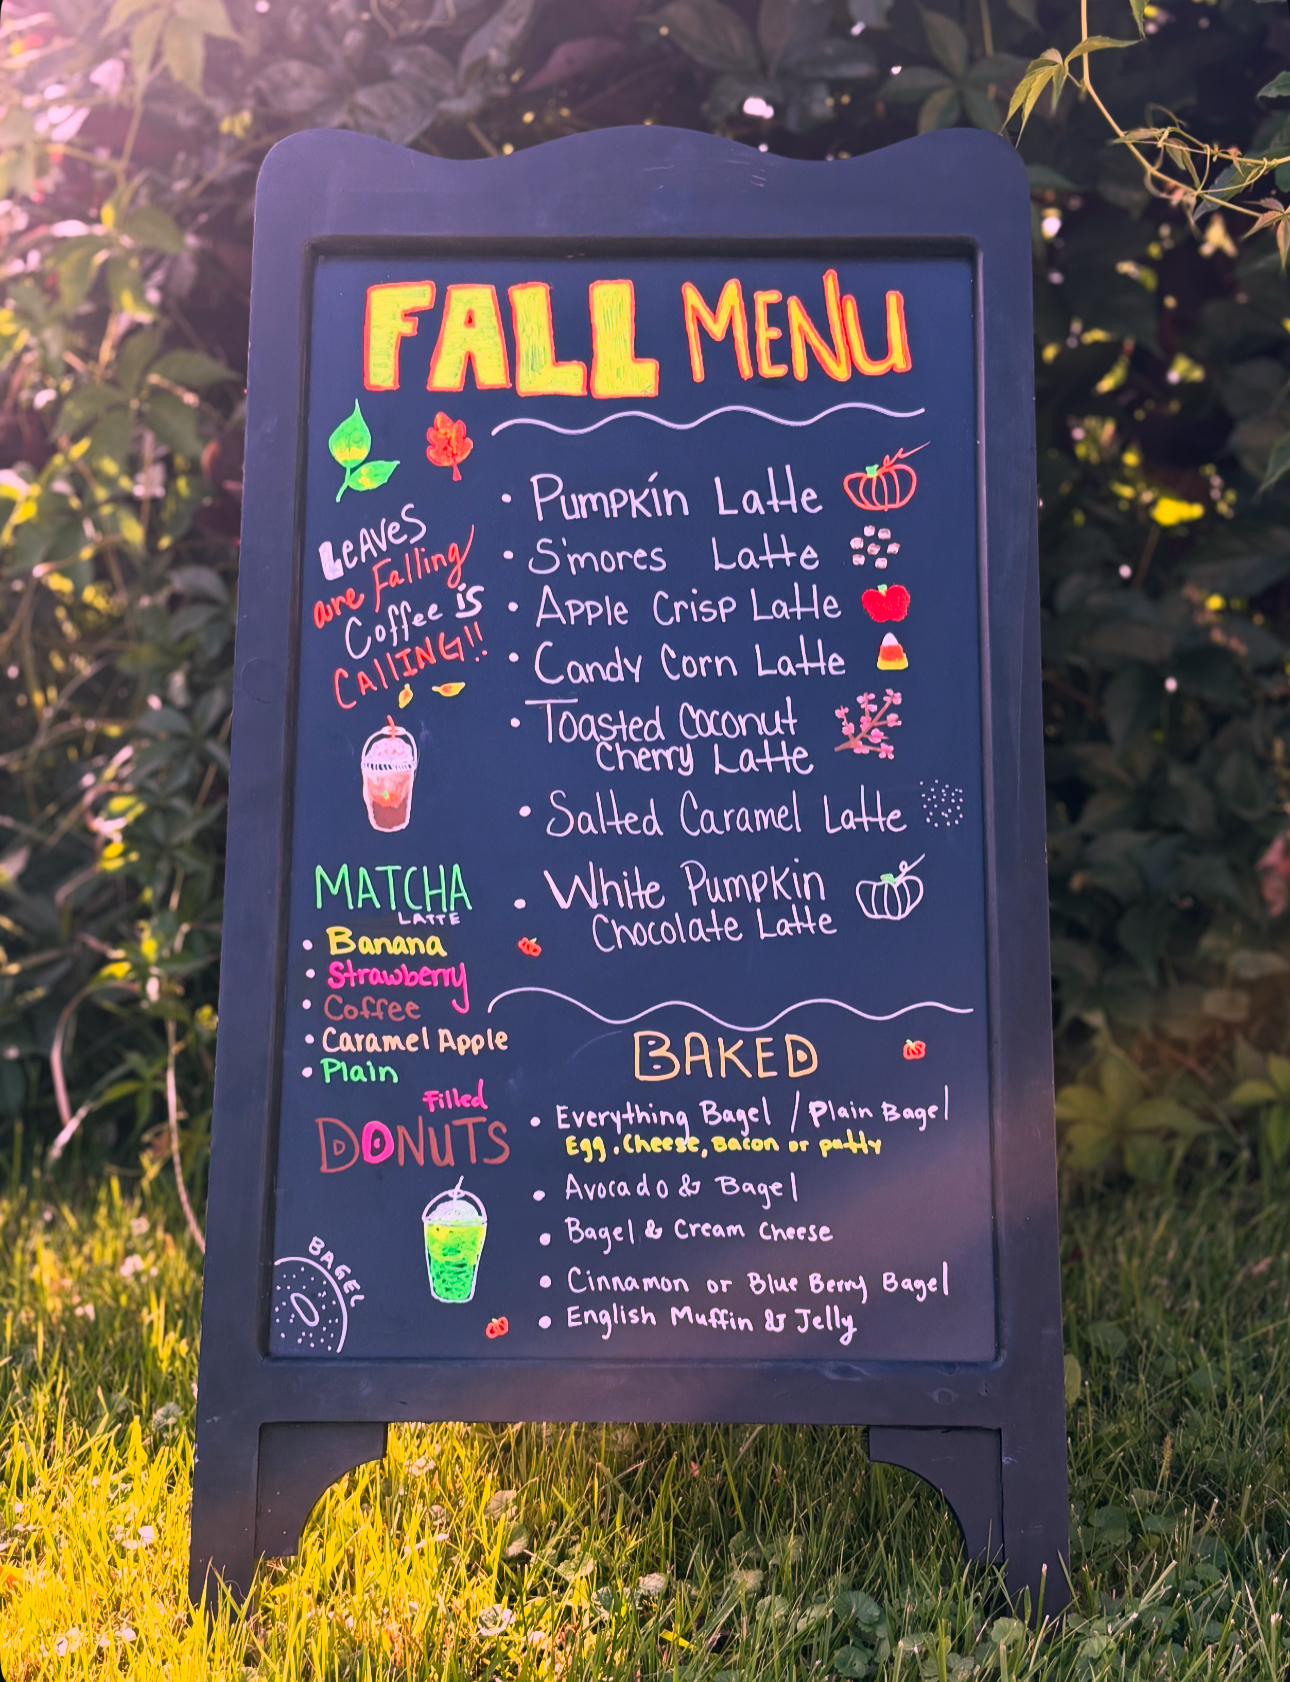 FALL MENU
LEAVES
are Falling
Coffee is
CALLING!!
• Pumpkin Latte
• S'mores Latte
• Apple Crisp Latte
• Candy Corn Latte
• Toasted Coconut
Cherry Latte
• Salted Caramel Latte
• White Pumpkin
Chocolate Latte
MATCHA
LATTE
• Banana
• Strawberry
• Coffee
• Caramel Apple
• Plain
Filled
DONUTS
BAGEL
BAKED
• Everything Bagel / Plain Bagel
Egg. Cheese, Bacon or patty
• Avocado & Bagel
• Bagel & Cream Cheese
• Cinnamon or Blue Berry Bagel
• English Muffin & Jelly